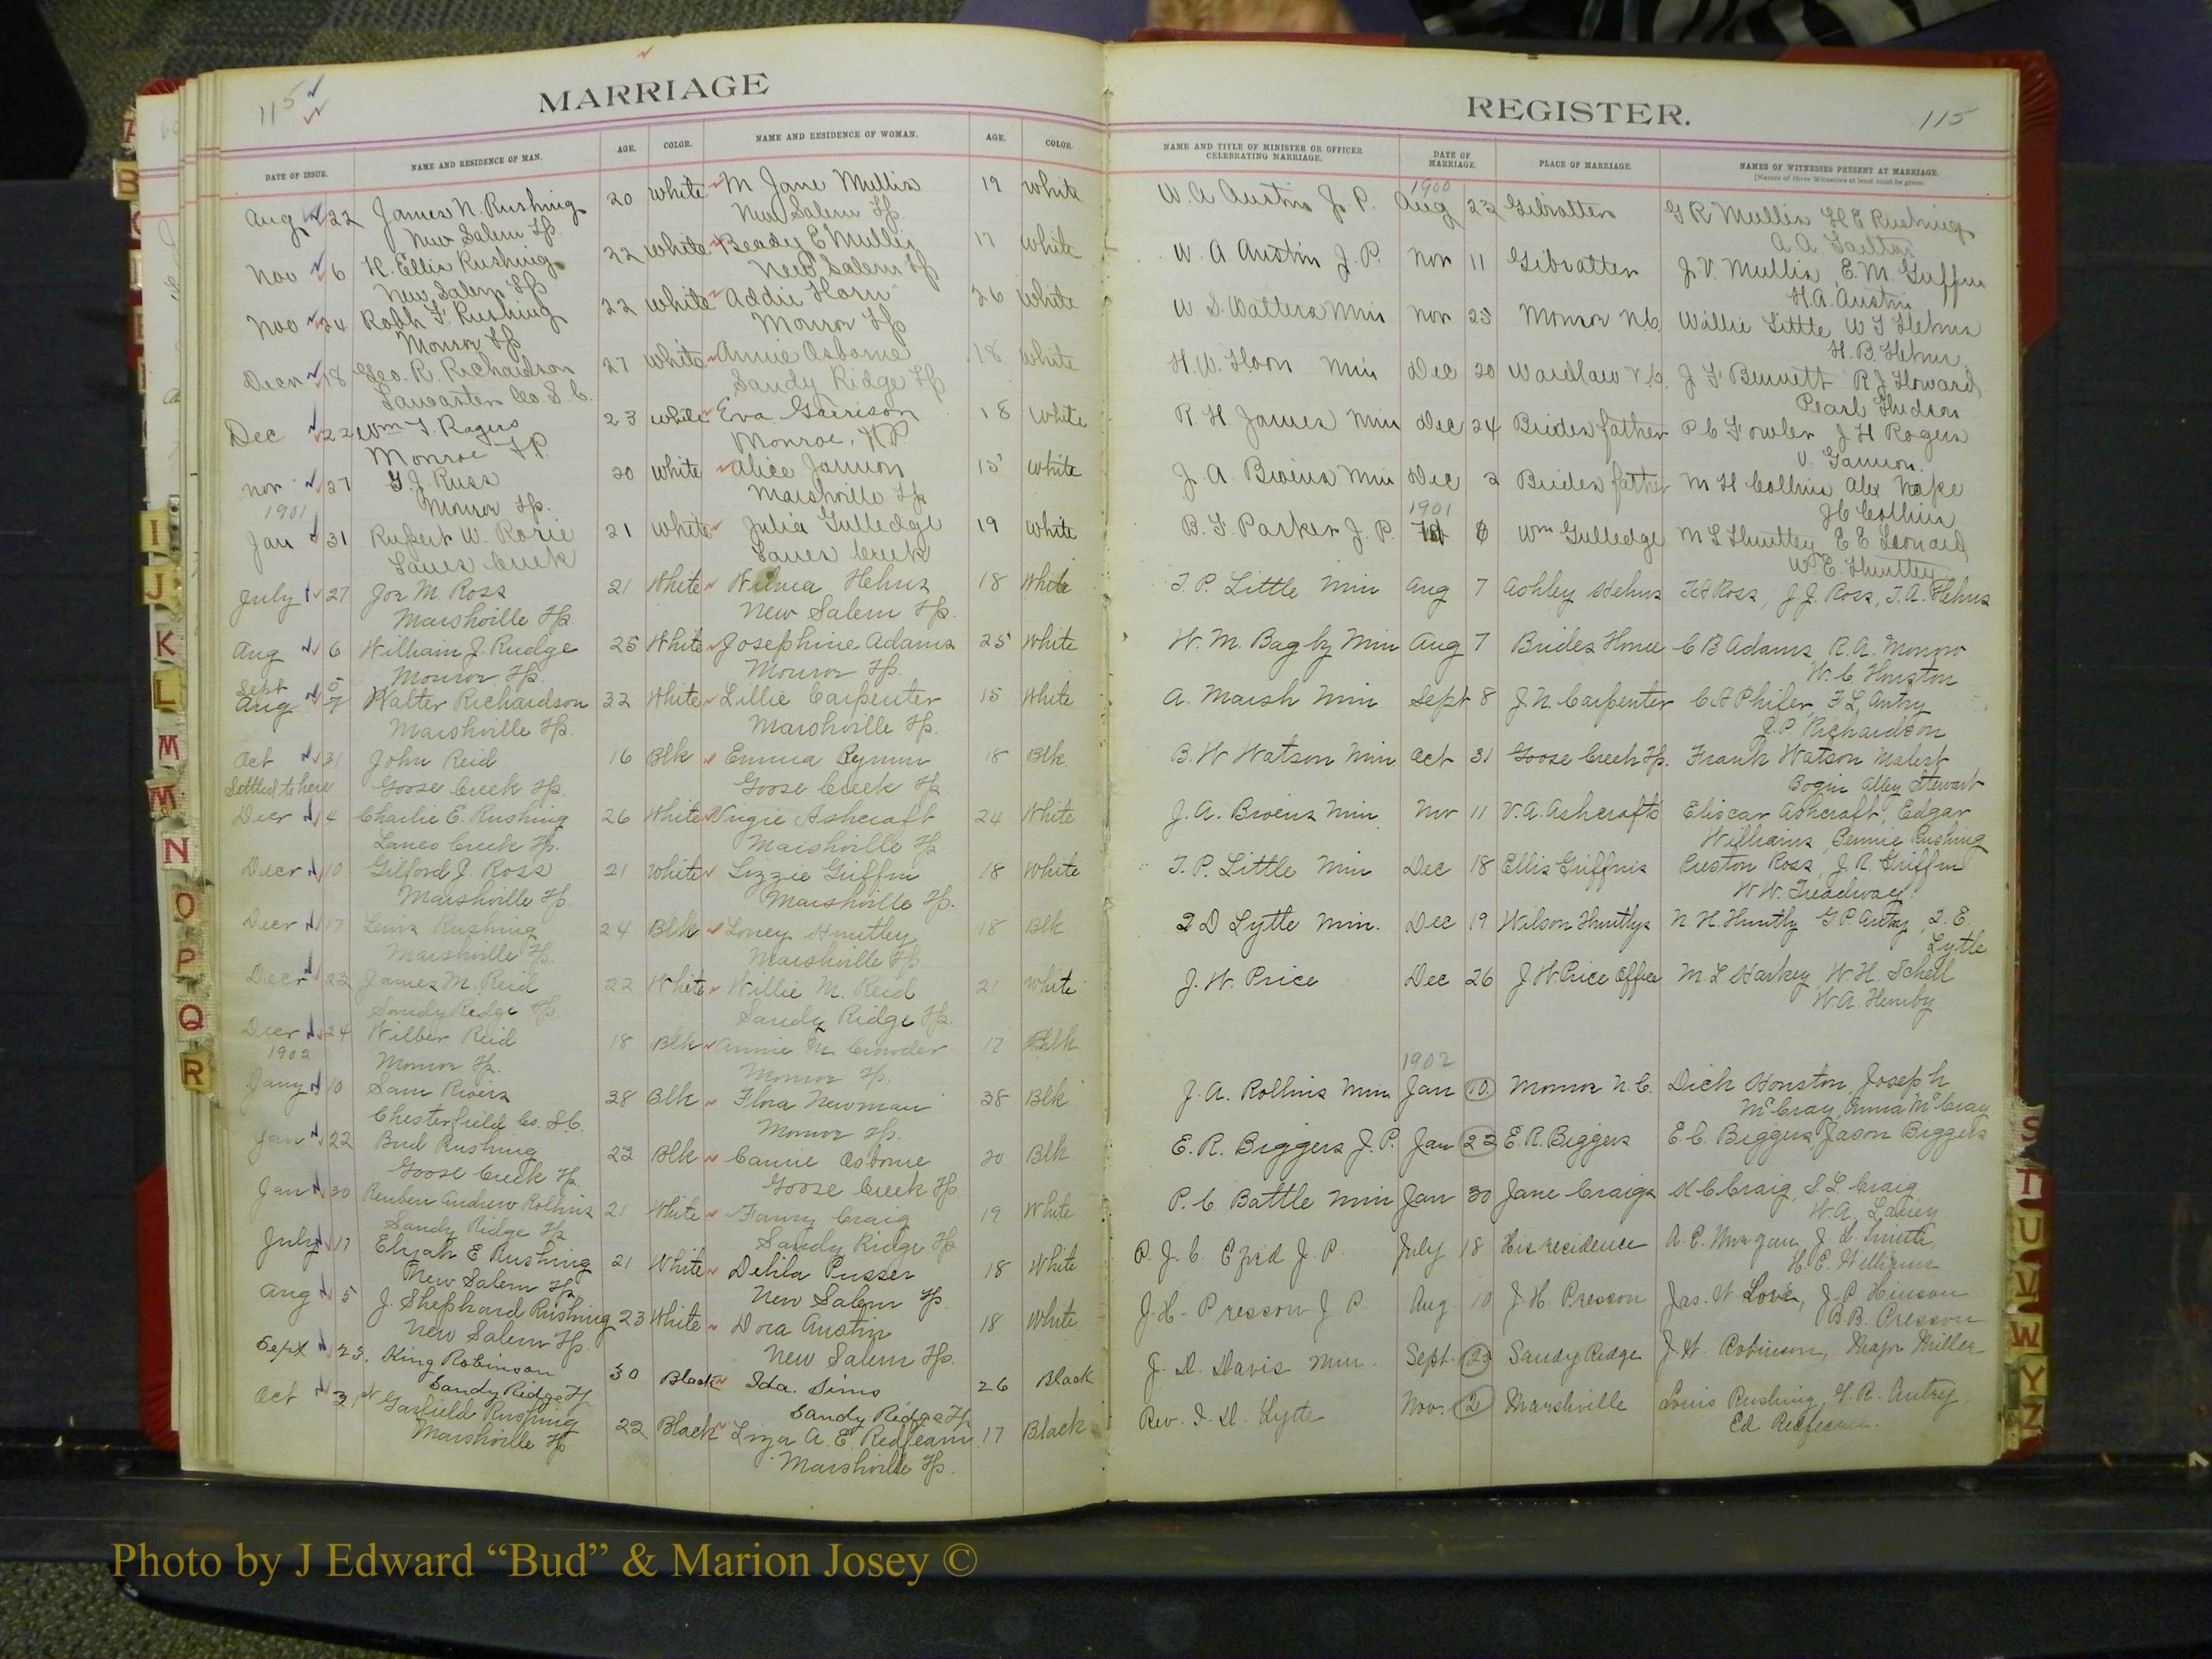 115
MARRIAGE
DATE OF ISSUE. NAME AND RESIDENCE OF MAN. AGE. COLOR. NAME AND RESIDENCE OF WOMAN. AGE. COLOR.
Aug 22 James N. Rushing 20 White M Jane Mullis 19 White
New Salem Tp New Salem Tp.
Nov 6 H. Ellis Rushing 22 White Beady E Mullis 17 White
New Salem Tp New Salem Tp
Nov 24 Robh F. Rushing 22 White Addie Horn 26 White
Monroe Tp Monroe Tp
Decr 18 Geo. R. Richardson 27 White Annie Osborne 18 White
Lancaster Co. S. C. Sandy Ridge Tp
Dec 22 Wm T. Rogers 23 White Eva Garrison 18 White
Monroe T.P. Monroe,
Nov 27 G. J. Russ 20 White Alice 15 White
1901 Monroe Tp. Marshville Tp
Jan 31 Rupert W. Rorie 21 White Julia Gulledge 19 White
Lanes Creek Lanes Creek
July 27 Joe M. Ross 21 White Helms 18 White
Marshville Tp. New Salem Tp.
Aug 6 William J. Rudge 25 White Josephine Adams 25 White
Monroe Tp. Monroe Tp.
Sept 5
Aug 7 Walter Richardson 22 White Lillie Carpenter 15 White
Marshville Tp. Marshville Tp.
Oct 31 John Reid 16 Blk Emma 18 Blk.
Settled to here Goose Creek Tp. Goose Creek Tp
Decr 4 Charlie E. Rushing 26 White Virgie Ashcraft 24 White
Lanes Creek Tp. Marshville Tp.
Decr 10 Gilford J. Ross 21 White Lizzie Griffin 18 White
Marshville Tp. Marshville Tp.
Decr 17 Lewis Rushing 24 Blk Loney Huntley 18 Blk
Marshville Tp. Marshville Tp
Decr 23 James M. Reid 22 White Willie M. Reid 21 White
Sandy Ridge Tp. Sandy Ridge Tp.
Decr 24 Wilber Reid 18 Blk Annie M Crowder 17 Blk
1902 Monroe Tp. Monroe Tp.
Jany 10 Sam Rivers 38 Blk Flora Newman 38 Blk
Chesterfield Co. S.C. Monroe Tp.
Jan 22 Bud Rushing 23 Blk Carrie Osborne 20 Blk
Goose Creek Tp Goose Creek Tp
Jan 30 Reuben Andrew Rollins 21 White Fanny Craig 19 White
Sandy Ridge Tp Sandy Ridge Tp
July 17 Elijah E Rushing 21 White Delila Pusser 18 White
New Salem Tp. New Salem Tp
Aug 5 J. Shephard Rushing 23 White Dora Austin 18 White
New Salem Tp. New Salem Tp.
Sept 23. King Robinson 30 Black Ida. Sims 26 Black
Sandy Ridge Tp Sandy Ridge Tp
Oct 31st Garfield Rushing 22 Black Liza A. E. Redfearn 17 Black
Marshville Tp Marshville Tp.
REGISTER. 115
NAME AND TITLE OF MINISTER OR OFFICER CELEBRATING MARRIAGE. DATE OF MARRIAGE. PLACE OF MARRIAGE. NAMES OF WITNESSES PRESENT AT MARRIAGE.
[Names of three Witnesses at least must be given.
1900
W. A Austin J. P. Aug 23 Gibralter G R Mullis H E Rushing
W. A Austin J. P. Nov 11 Gibralter J. V. Mullis, E. M. Griffin
H. A. Austin
W S. Watters Min Nov 25 Monroe N C Willie Little W T Helms
H. B. Helms
H. W. Min Dec 20 Wardlaw N. C. J F Bennett R J Howard
Pearl Hudson
R H James Min Dec 24 Brides father P C Fowler J H Rogers
J. A. Bivens Min Dec 2 Brides father M H Collins Alex
J C Collins
1901
B. F. Parker J. P. Wm Gulledge M L Huntley E E Leonard
W E. Huntley
T. P. Little Min Aug 7 Ashley Helms Ross, J. J. Ross, T. A. Helms
W. M. Bagby Min Aug 7 Brides Home C B Adams R. A. Morrow
W. C. Houston
A. Marsh Min Sept 8 J. N. Carpenter C A Phifer, F L Autry
J. P. Richardson
B. W Watson Min Oct 31 Goose Creek Tp. Frank Watson
Alley Stewart
J. A. Bivens Min Nov 11 V. A. Ashcrafts Ashcraft, Edgar
Williams, Bennie Rushing
T. P. Little Min Dec 18 Ellis Griffins Preston Ross, J. R. Griffin
W W. Treadway
I D Lytle Min. Dec 19 Wilson Huntlys N. H. Huntly G P. Autry, I. E.
Lytle
J. W. Price Dec 26 J W Price Office M. L Harkey W. H. Schell
W A. Hemby
1902
J. A. Rollins Min Jan 10. Monroe N. C. Dick Houston, Joseph
McCray, Anna McCray
E. R. Biggers J. P. Jan 22 E. R. Biggers E. C. Biggers Jason Biggers
P. C. Battle Min Jan 30 Jane Craigs K C Craig, S L Craig
W. A. Laney
P. J. C. Efird J. P. July 18 His recidence A. C. Morgan, J. L. Smith,
H. C. Williams
J. H. Presson J P. Aug. 10 J. H Presson Jas. W Love, J. P. Hinson
B. B. Presson
J. D. Davis Min. Sept. 23 Sandy Ridge J. W. Robinson, Major Miller
Rev. I. D. Lytle Nov. 2 Marshville Louis Rushing, G. R. Autry
Ed Redfearn.
I
J
K
L
M
M
N
O
P
Q
R
S
T
U
V
W
Y
Z
Photo by J Edward “Bud” & Marion Josey ©